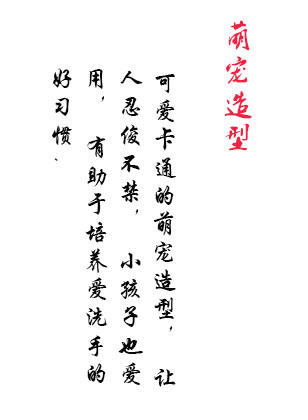 萌宠造型
可爱卡通的萌宠造型，让
人忍俊不禁，小孩子也爱
用，有助于培养爱洗手的
好习惯、